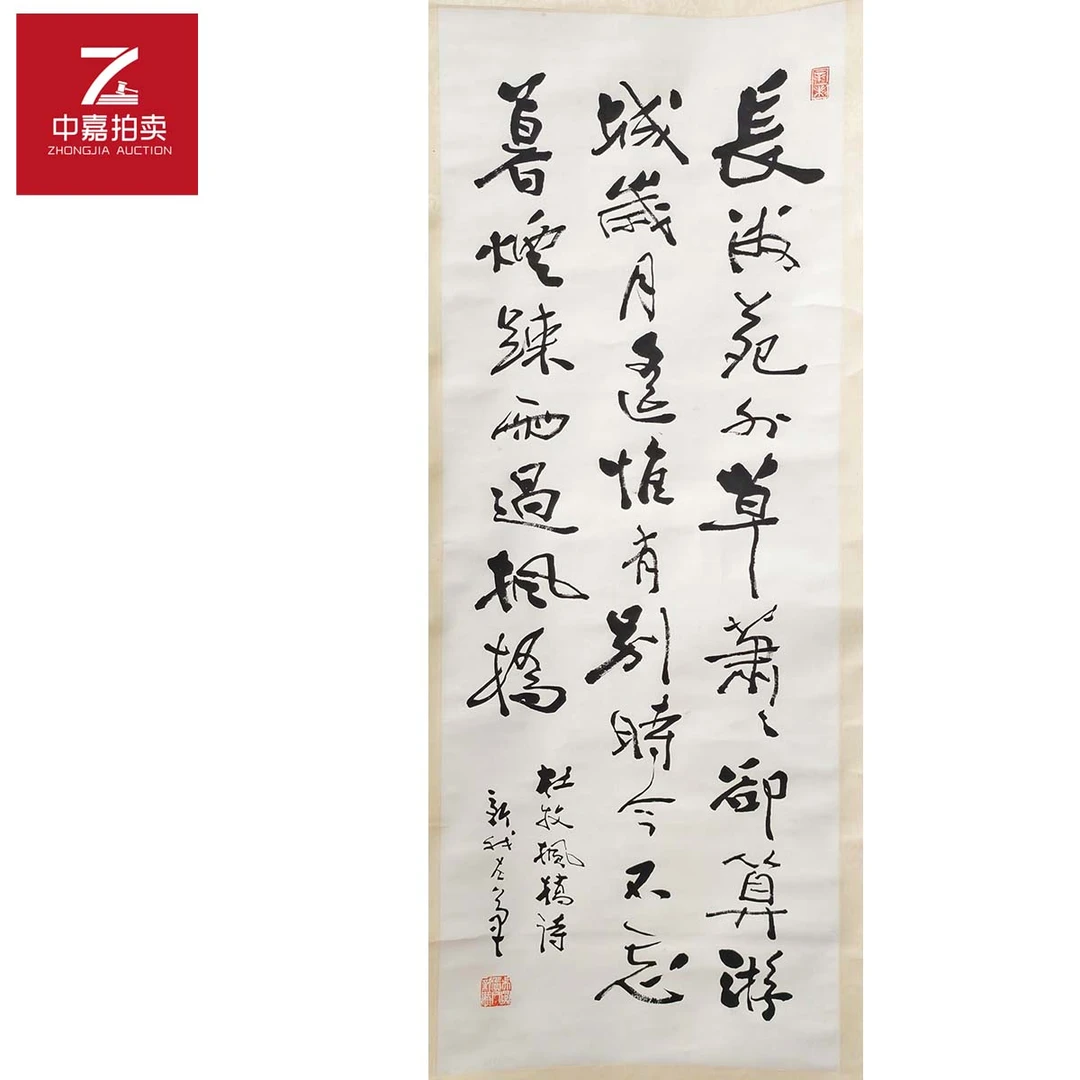 中嘉拍卖
ZHONGJIA AUCTION
長洲苑外草蕭々卻算游
城歲月遥惟有别時今不忘
暮煙踈雨過楓橋
杜牧楓橋詩
新我左筆